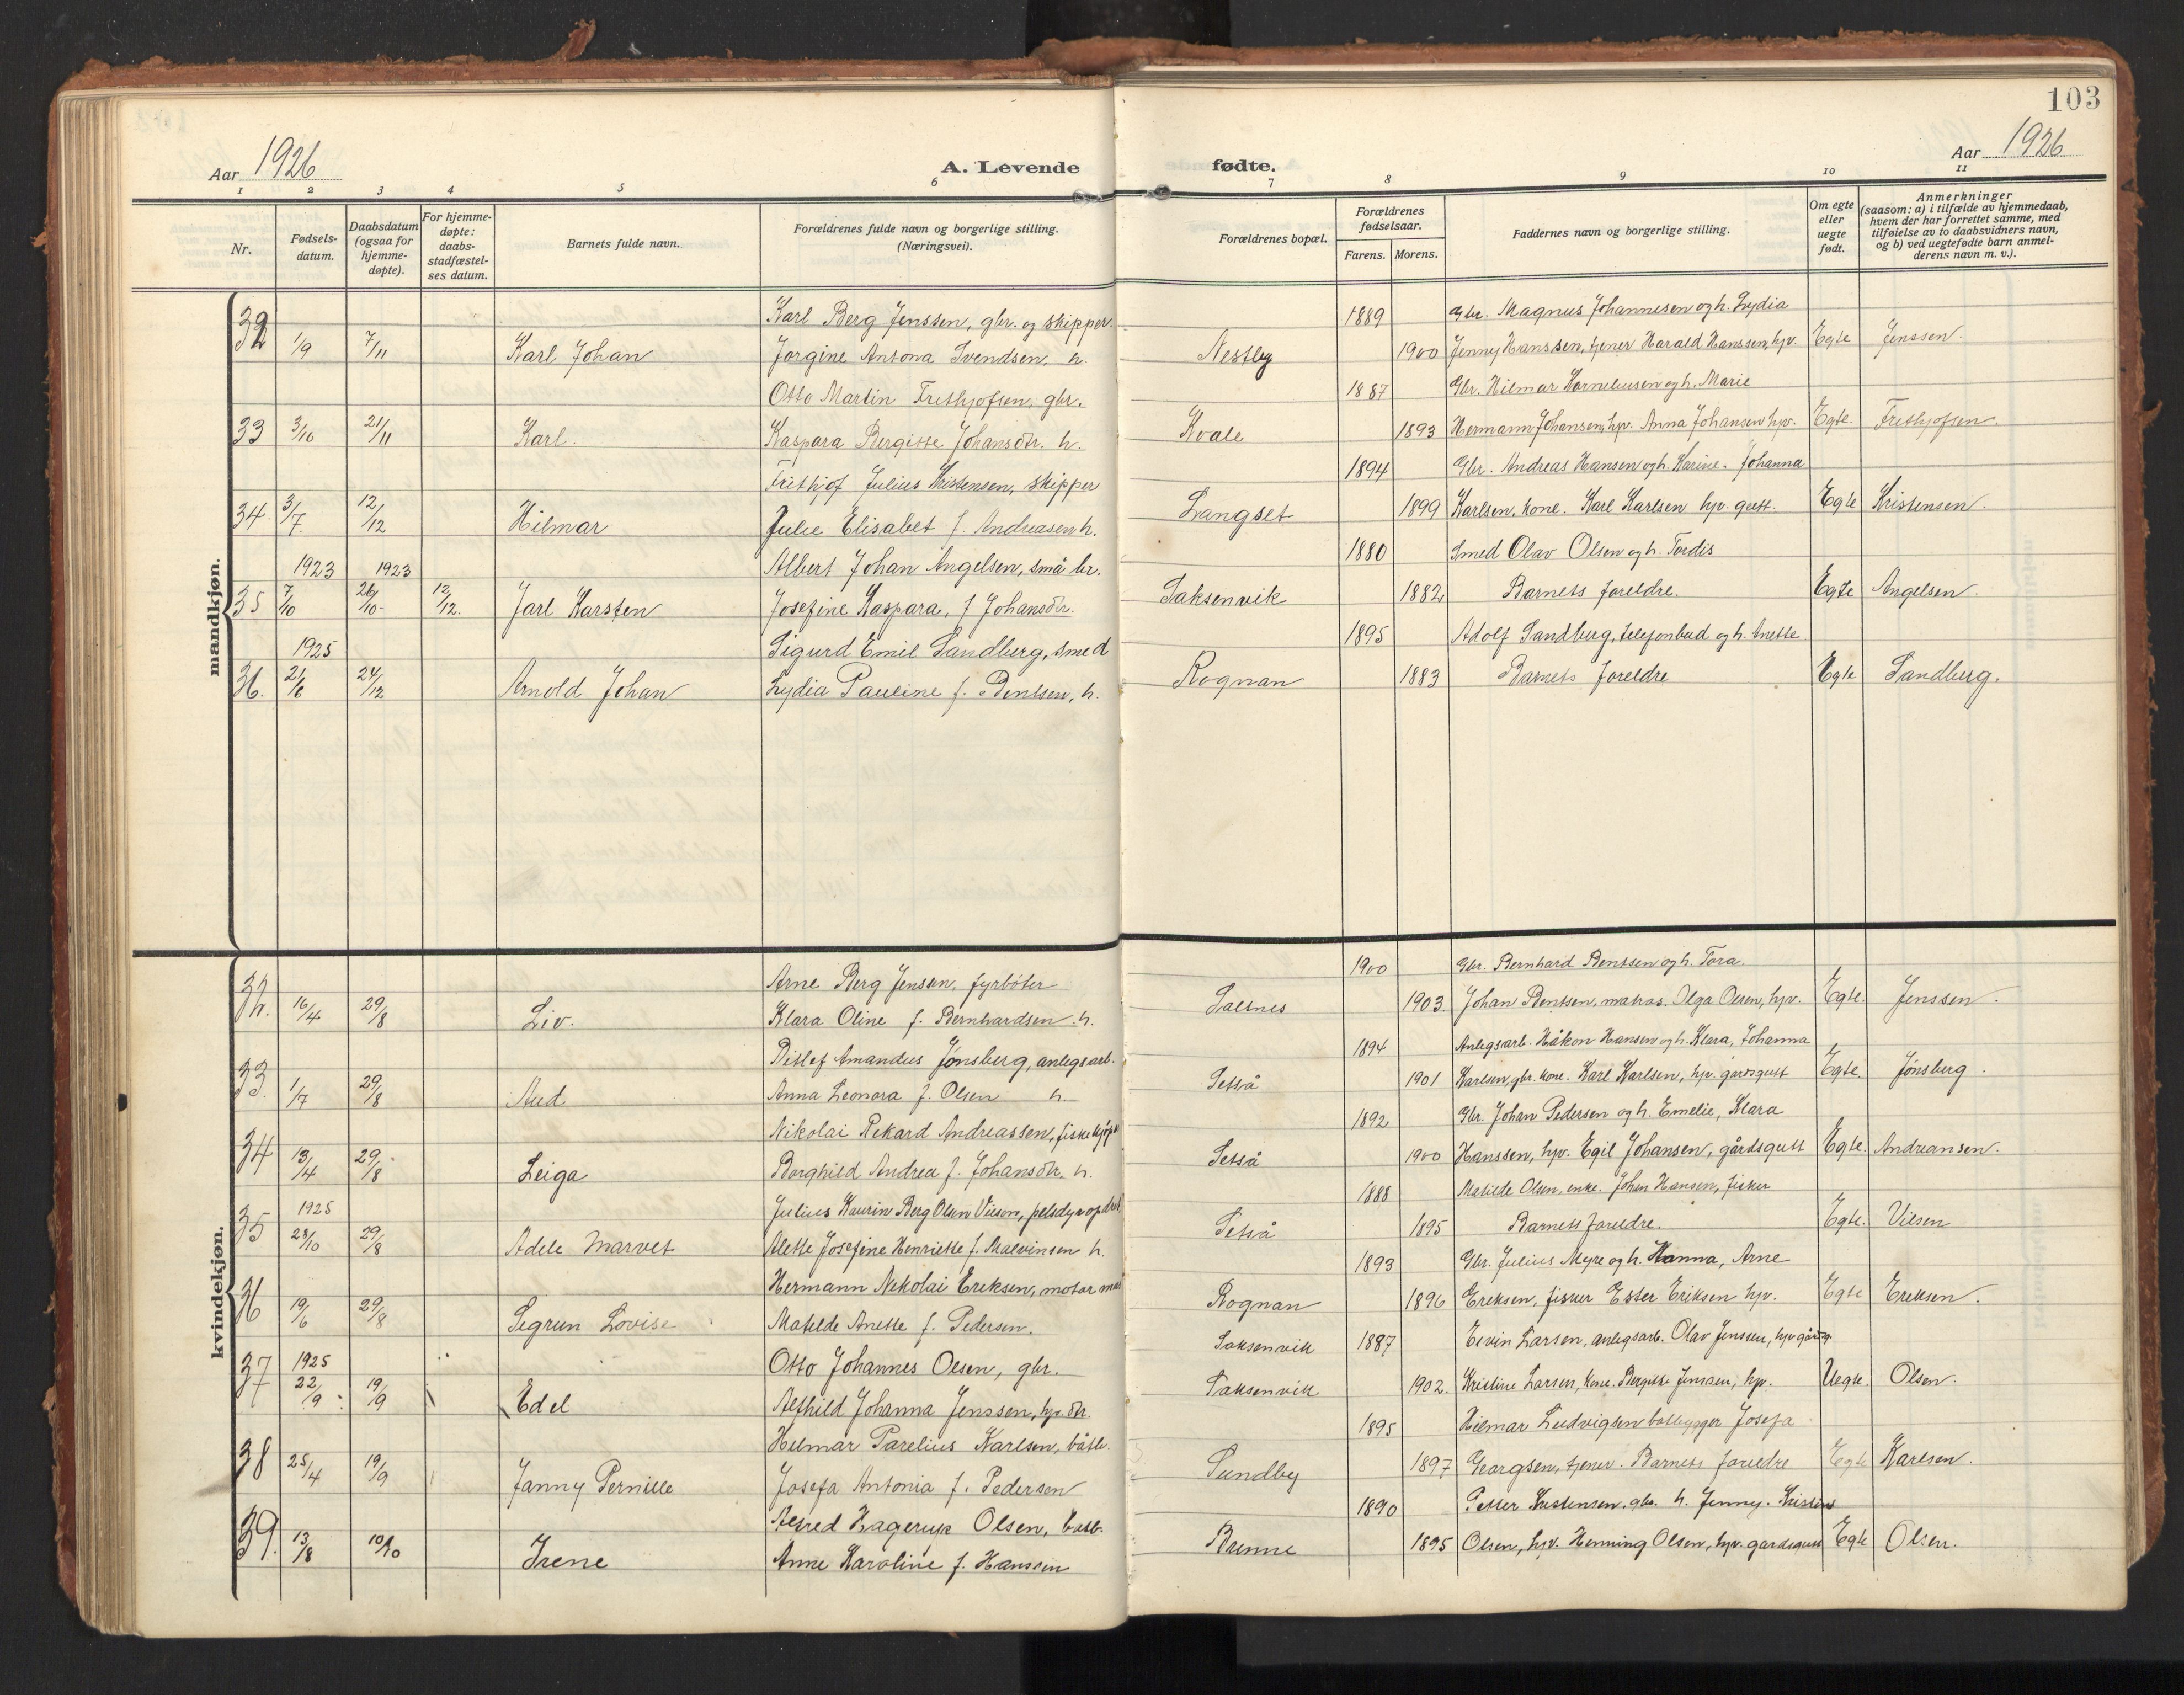 103
Aar 1926
A. Levende fødte.
Aar 1926
1 2 3 4 5 6 7 8 9 10 11
Nr.
Fødsels-
datum.
Daabsdatum
(ogsaa for
hjemme-
døpte).
For hjemme-
døpte:
daabs-
stadfæstel-
ses datum.
Barnets fulde navn.
Forældrenes fulde navn og borgerlige stilling.
(Næringsvei).
Forældrenes bopæl.
Forældrenes
fødselsaar.
Farens. Morens.
Faddernes navn og borgerlige stilling.
Om egte
eller
uegte
født.
Anmerkninger
(saasom: a) i tilfælde av hjemmedaab,
hvem der har forrettet samme, med
tilføielse av to daabsvidners navn,
og b) ved uegtefødte barn anmel-
derens navn m. v.).
mandkjøn.
Karl Berg Jenssen, gbr. og skipper. 1889 Gbr. Magnus Johannesen og h. Lydia
32 1/9 7/11 Karl Johan Jørgine Antona Svendsen, h. Nestby 1900 Jenny Hanssen, tjener Harald Hanssen, hjv. Egte Jenssen.
Otto Martin Frithjofsen, gbr. 1887 Gbr. Hilmar Korneliusen og h. Marie
33 3/10 21/11 Karl. Kaspara Bergitte Johansdtr. h. Kvale 1893 Hermann Johansen, hjv. Anna Johansen hjv. Egte. Frithjofsen.
Frithjof Julius Kristensen, skipper 1894 Gbr. Andreas Hansen og h. Karine. Johanna
34. 3/7. 12/12 Hilmar Julie Elisabet f. Andreasen h. Langset 1899 Karlsen, kone. Karl Karlsen hjv. gutt. Egte Kristensen.
1923 1923 Albert Johan Angelsen, små br. 1880 Smed Olav Olsen og h. Tordis
35 7/10 26/10 12/12. Jarl Karsten Josefine Kaspara, f Johansdtr. Saksenvik 1882 Barnets foreldre. Egte Angelsen.
1925 Sigurd Emil Sandberg, smed 1895 Adolf Sandberg, telefonbud og h. Anette.
36. 21/6 24/12 Arnold Johan Lydia Pauline f. Bentsen, h. Rognan 1883 Barnets foreldre Egte Sandberg.
kvindekjøn.
Arne Berg Jenssen, fyrbøter 1900 Gbr. Bernhard Bentsen og h. Tora.
32. 16/4 29/8 Liv. Klara Oline f. Bernhardsen. h. Saltnes 1903. Johan Bentsen, matros. Olga Olsen, hjv. Egte. Jenssen.
Ditlef Amandus Jønsberg, anlegsarb. 1894 Anlegsarb. Håkon Hansen og h. Klara, Johanna
33. 1/7 29/8 Aud Anna Leonora f. Olsen h. Setså 1901 Karlsen, gbr. kone. Karl Karlsen, hjv. gårdsgutt Egte. Jønsberg.
Nikolai Rekard Andreassen, fiskekjøper 1892 Gbr. Johan Pedersen og h. Emelie, Klara
34 13/4 29/8 Leiga Borghild Andrea f. Johansdtr. h. Setså 1900 Hanssen, hjv. Egil Johansen, gårdsgutt Egte. Andreansen.
1925 Julius Kaurin Berg Olsen Vilsen, pelsdyropdret 1888 Matilde Olsen, enke. Johan Hansen, fisker
35 28/10 29/8 Adele Marvet Alette Josefine Henriette f. Malvinsen h. Setså 1895 Barnets foreldre. Egte. Vilsen
Hermann Nikolai Eriksen, motor 1893 Gbr. Julius Myre og h. Hanna, Arne
36 19/6 29/8 Sigrun Lovise Matilde Anette f. Pedersen. Rognan 1896 Eriksen, fisker Ester Eriksen hjv. Egte Eriksen.
37 1925 Otto Johannes Olsen, gbr. Saksenvik 1887 Edvin Larsen, anlegsarb. Olav Jenssen, hjv
22/9 19/9 Edel Alfhild Johanna Jenssen, hjv. dtr. Saksenvik 1902. Kristine Larsen, kone. Bergitte Jenssen, hjv. Uegte. Olsen.
Hilmar Parelius Karlsen, båtb. 1895 Hilmar Ludvigsen båtbygger Josefa
38 25/4 19/9 Janny Pernille Josefa Antonia f. Pedersen Sundby 1897 Georgsen, tjener. Barnets foreldre Egte Karlsen.
Alfred Hagerup Olsen, båtb. 1890 Petter Kristensen, gbr. h. Jenny. Kristine
39. 13/8 10/10 Irene Anne Karoline f. Hanssen Brenne 1895 Olsen, hjv. Henning Olsen, hjv. gardsgutt Egte Olsen.